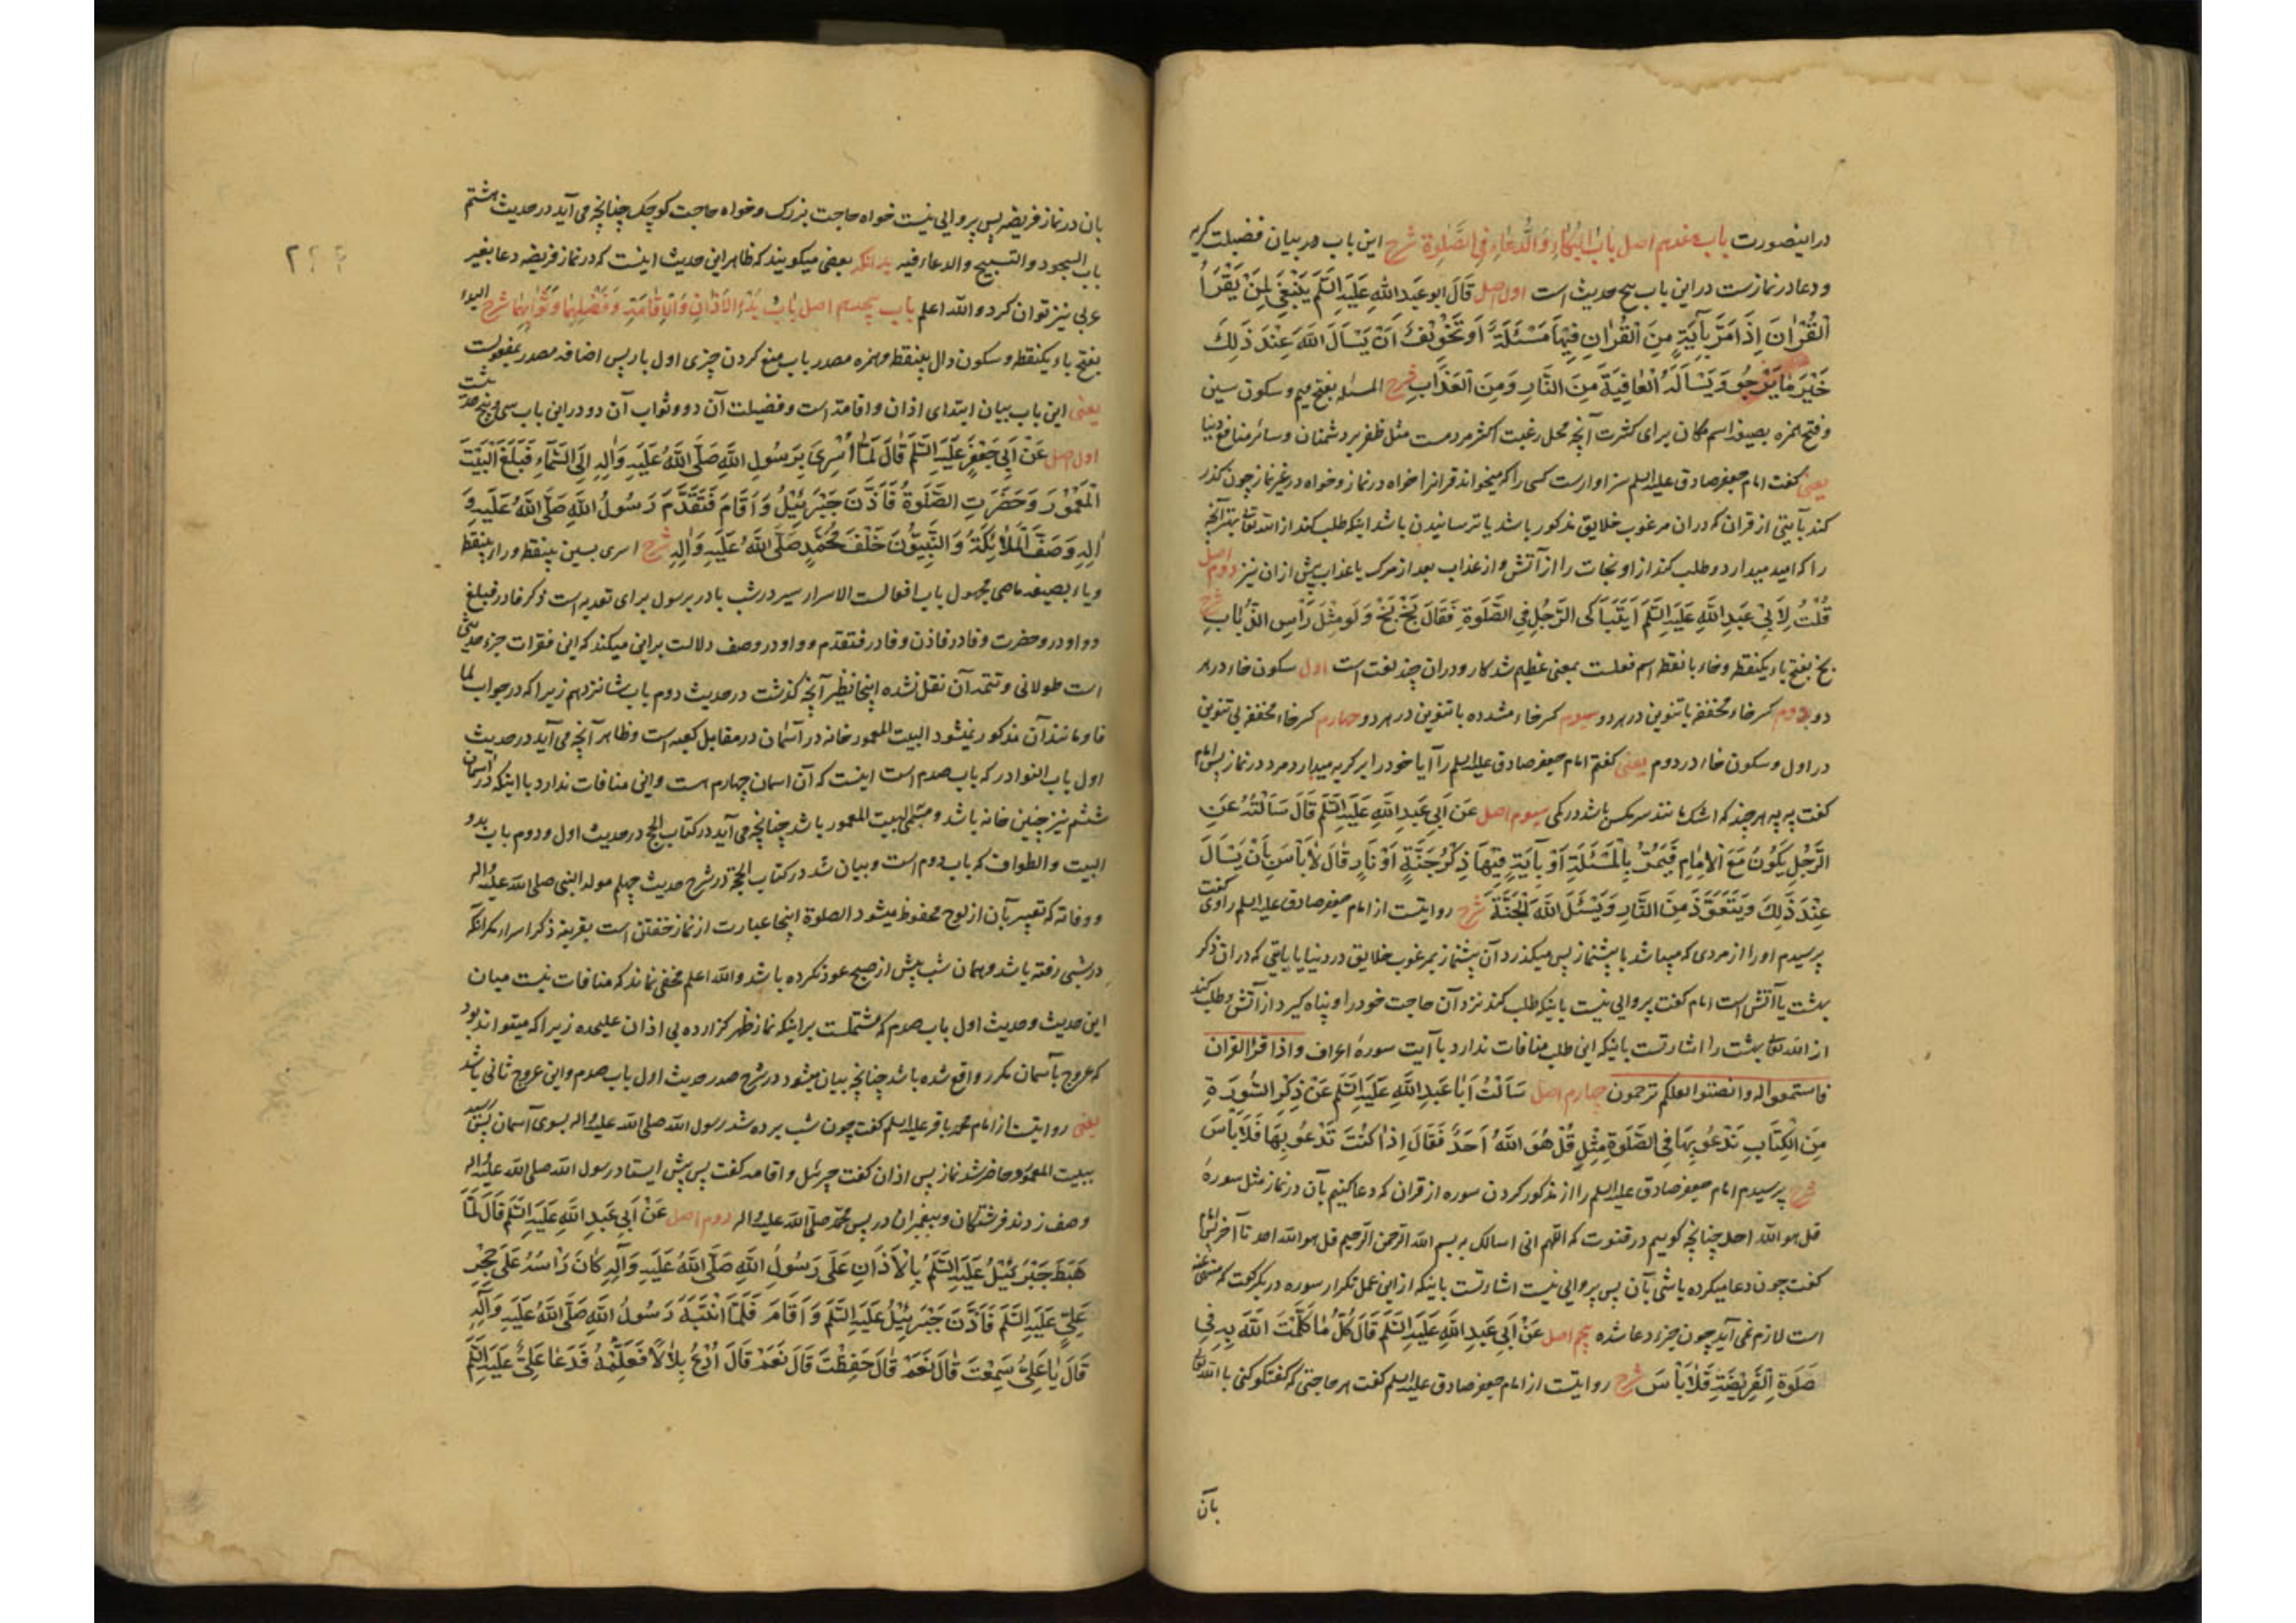 دراینصورت باب هفدهم اصل بَابُ الْبُكَاءِ وَالدُّعَاءِ فِي الصَّلٰوةِ شرح این باب در بیان فضیلت گریه
و دعا در نمازست در این باب پنج حدیث است اول اصل قَالَ ابو عَبدِ اللهِ عَلَيهِ السَّلَم يَنْبَغِي لِمَنْ يَقْرَأُ
الْقُرْآنَ اِذَا مَرَّ بِآيَةٍ مِنَ الْقُرْآنِ فِيْهَا مَسْئَلَةٌ اَوتَخْوِيْفٌ اَنْ يَسْاَلَ اللّهَ عِنْدَ ذَلِكَ
خَيْرَ مَا يَرْجُو وَيَسْاَلَهُ الْعَافِيَةَ مِنَ النَّارِ وَمِنَ الْعَذَابِ شرح المسئله بفتح میم و سکون سین
و فتح همزه بصیغه اسم مکان برای کثرت آنچه محل رغبت اکثر مردمست مثل ظفر بر دشمنان و سائر منافع دنیا
یعنی گفت امام جعفر صادق علیه السلم سزاوارست کسی را که میخواند قرانرا خواه در نماز و خواه در غیر نماز چون گذر
کند بآیتی از قران که در ان مرغوب خلایق مذکور باشد یا ترسانیدن باشد اینکه طلب کند از الله تعالی بهتر آنچه
را که امید میدارد و طلب کند از او نجات را از آتش و از عذاب بعد از مرگ یا عذاب پیش از ان نیز دوم اصل
قُلْتُ لِاَبِيْ عَبدِ اللّهِ عَلَيهِ السَّلَم اَيَتَبَاكَى الرَّجُلِ فِي الصَّلٰوةِ فَقَالَ بَخْ بَخْ وَلَو مِثْلَ رَأْسِ الذُّبَابِ شرح
بخ بفتح باء یکنقطه و خاء با نقطه اسم فعلست بمعنی عظیم شد کار و دران چند لغت است اول سکون خاء در هر
دو دوم کسر خاء مخففه با تنوین در هر دو سیوم کسر خاء مشدده با تنوین در هر دو چهارم کسر خاء مخففه بی تنوین
در اول و سکون خاء در دوم یعنی گفتم امام جعفر صادق علیه السلم را آیا خود را بر گریه میدارد مرد در نماز پس امام
گفت په په هر چند که اشک مانند سر مگس باشد در کمی سیوم اصل عَن اَبِي عَبدِ اللّهِ عَلَيهِ السَّلَم قَالَ سَاَلْتُهُ عَنِ
الرَّجُلِ يَكُونُ مَعَ الْاِمَامِ فَيَمُرُّ بِالْمَسْئَلَةِ اَوْ بِآيَةٍ فِيْهَا ذِكْرُ جَنَّةٍ اَوْ نَارٍ قَالَ لَا بَأْسَ بِأَنْ يَسْاَلَ
عِنْدَ ذَلِكَ وَيَتَعَوَّذَ مِنَ النَّارِ وَيَسْئَلَ اللّهَ الْجَنَّةَ شرح روایتست از امام جعفر صادق علیه السلم راوی گفت
پرسیدم اورا از مردی که میباشد با پیشنماز پس میگذرد آن پیشنماز بمرغوب خلایق در دنیا یا بایتی که در ان ذکر
بهشت یا آتش است امام گفت پروایی نیست باینکه طلب کند نزد آن حاجت خود را و پناه گیرد از آتش و طلب کند
از الله تعالی بهشت را اشارتست باینکه این طلب منافات ندارد با آیت سورهٔ اعراف واذا قرئ القران
فاستمعوا له وانصتوا لعلکم ترحمون چهارم اصل سَاَلْتُ اَبَا عَبدِ اللّهِ عَلَيهِ السَّلَم عَنْ ذِكْرِ السُّورَةِ
مِنَ الْكِتَابِ نَدْعُو بِهَا فِي الصَّلٰوةِ مِثْلِ قُلْ هُوَ اللّهُ اَحَدٌ فَقَالَ اِذَا كُنْتَ تَدْعُو بِهَا فَلَا بَأْسَ
شرح پرسیدم امام جعفر صادق علیه السلم را از مذکور کردن سوره از قران که دعا کنیم بآن در نماز مثل سورهٔ
قل هو الله احد چنانچه گوییم در قنوت که اللّهم انی اسالک به بسم الله الرحمن الرحیم قل هو الله احد تا آخر پس امام
گفت چون دعا میکرده باشی بآن پس پروایی نیست اشارتست باینکه از این عمل تکرار سوره در یکرکعت که منهی عنه
است لازم نمی آید چون جزء دعا شده پنجم اصل عَنْ اَبِي عَبدِ اللّهِ عَلَيهِ السَّلَم قَالَ كُلُّ مَا كَلَّمْتَ اللّهَ بِهِ فِي
صَلٰوةِ الْفَرِيْضَةِ فَلَا بَأْسَ شرح روایتست از امام جعفر صادق علیه السلم گفت هر حاجتی که گفتگو کنی با الله تعالی
بآن
بان در نماز فریضه پس پروایی نیست خواه حاجت بزرک و خواه حاجت کوچک چنانچه می آید در حدیث هشتم
باب السجود والتسبیح والدعاء فیه بدانکه بعضی میگویند که ظاهر این حدیث اینست که در نماز فریضه دعا بغیر
عربی نیز توان کرد والله اعلم باب هیجدهم اصل بَابُ بَدْءِ الْاَذَانِ وَالْاِقَامَةِ وَفَضْلِهِمَا وَثَوَابِهِمَا شرح البدء
بفتح باء یکنقطه و سکون دال بینقطه و همزه مصدر باب منع کردن چیزی اول بار پس اضافه مصدر بمفعولست
یعنی این باب بیان ابتدای اذان و اقامة است و فضیلت آن دو و ثواب آن دو در این باب سی و پنج حدیثست
اول اصل عَنْ اَبِي جَعْفَرٍ عَلَيهِ السَّلَم قَالَ لَمَّا اُسْرِيَ بِرَسُولِ اللّهِ صَلَّى اللّهُ عَلَيهِ وَالِهِ اِلَى السَّمَاءِ فَبَلَغَ الْبَيْتَ
الْمَعْمُوْرَ وَحَضَرَتِ الصَّلٰوةُ فَأَذَّنَ جَبْرَئِيْلُ وَاَقَامَ فَتَقَدَّمَ رَسُولُ اللّهِ صَلَّى اللّهُ عَلَيهِ وَ
اٰلِهِ وَصَفَّ الْمَلَائِكَةُ وَالنَّبِيُّونَ خَلْفَ مُحَمَّدٍ صَلَّى اللّهُ عَلَيهِ وَالِهِ شرح اسری بسین بینقطه و راء بینقطه
و یاء بصیغه ماضی مجهول باب افعالست الاسراء سیر در شب باء در برسول برای تعدیه است ذکر فا در فبلغ
و واو در وحضرت وفا در فاذن وفا در فتقدم و واو در وصف دلالت بر این میکند که این فقرات جزء حدیثی
است طولانی و تتمه آن نقل نشده اینجا نظیر آنچه گذشت در حدیث دوم باب شانزدهم زیرا که در جواب لما
فا و مانند آن مذکور نمیشود البیت المعمور خانه در آسمان در مقابل کعبه است و ظاهر آنچه می آید در حدیث
اول باب النوادر که باب صدم است اینست که آن اسمان چهارم است و این منافات ندارد با اینکه در آسمان
ششم نیز چنین خانه باشد و مسمی بیت المعمور باشد چنانچه می آید در کتاب الحج در حدیث اول و دوم باب بدو
البیت والطواف که باب دوم است و بیان شد در کتاب الحجة در شرح حدیث چهلم مولد النبی صلی الله علیه واله
و وفاته که تعبیر بآن از لوح محفوظ میشود الصلوة اینجا عبارت از نماز خفتن است بقرینه ذکر اسراء مگر انکه
در شبی رفته باشد و همان شب پیش از صبح عود نکرده باشد والله اعلم مخفی نماند که منافات نیست میان
این حدیث و حدیث اول باب صدم که مشتملست بر اینکه نماز ظهر گزارده بی اذان علیحده زیرا که میتواند بود
که عروج بآسمان مکرر واقع شده باشد چنانچه بیان میشود در شرح صدر حدیث اول باب صدم و این عروج ثانی باشد
یعنی روایتست از امام محمد باقر علیه السلم گفت چون شب برده شد رسول الله صلی الله علیه واله بسوی آسمان پس رسید
ببیت المعمور و حاضر شد نماز پس اذان گفت جبرئیل و اقامه گفت پس پیش ایستاد رسول الله صلی الله علیه واله
وصف زدند فرشتگان و پیغمبران در پس محمد صلی الله علیه واله دوم اصل عَنْ اَبِي عَبدِ اللّهِ عَلَيهِ السَّلَم قَالَ لَمَّا
هَبَطَ جَبْرَئِيْلُ عَلَيهِ السَّلَم بِالْاَذَانِ عَلَى رَسُولِ اللّهِ صَلَّى اللّهُ عَلَيهِ وَآلِهِ كَانَ رَأْسُهُ عَلَى حِجْرِ
عَلِيٍّ عَلَيهِ السَّلَم فَاَذَّنَ جَبْرَئِيْلُ عَلَيهِ السَّلَم وَاَقَامَ فَلَمَّا انْتَبَهَ رَسُولُ اللّهِ صَلَّى اللّهُ عَلَيهِ وَآلِهِ
قَالَ يَا عَلِيُّ سَمِعْتَ قَالَ نَعَمْ قَالَ حَفِظْتَ قَالَ نَعَمْ قَالَ اُدْعُ بِلَالًا فَعَلِّمْهُ فَدَعَا عَلِيٌّ عَلَيهِ السَّلَم